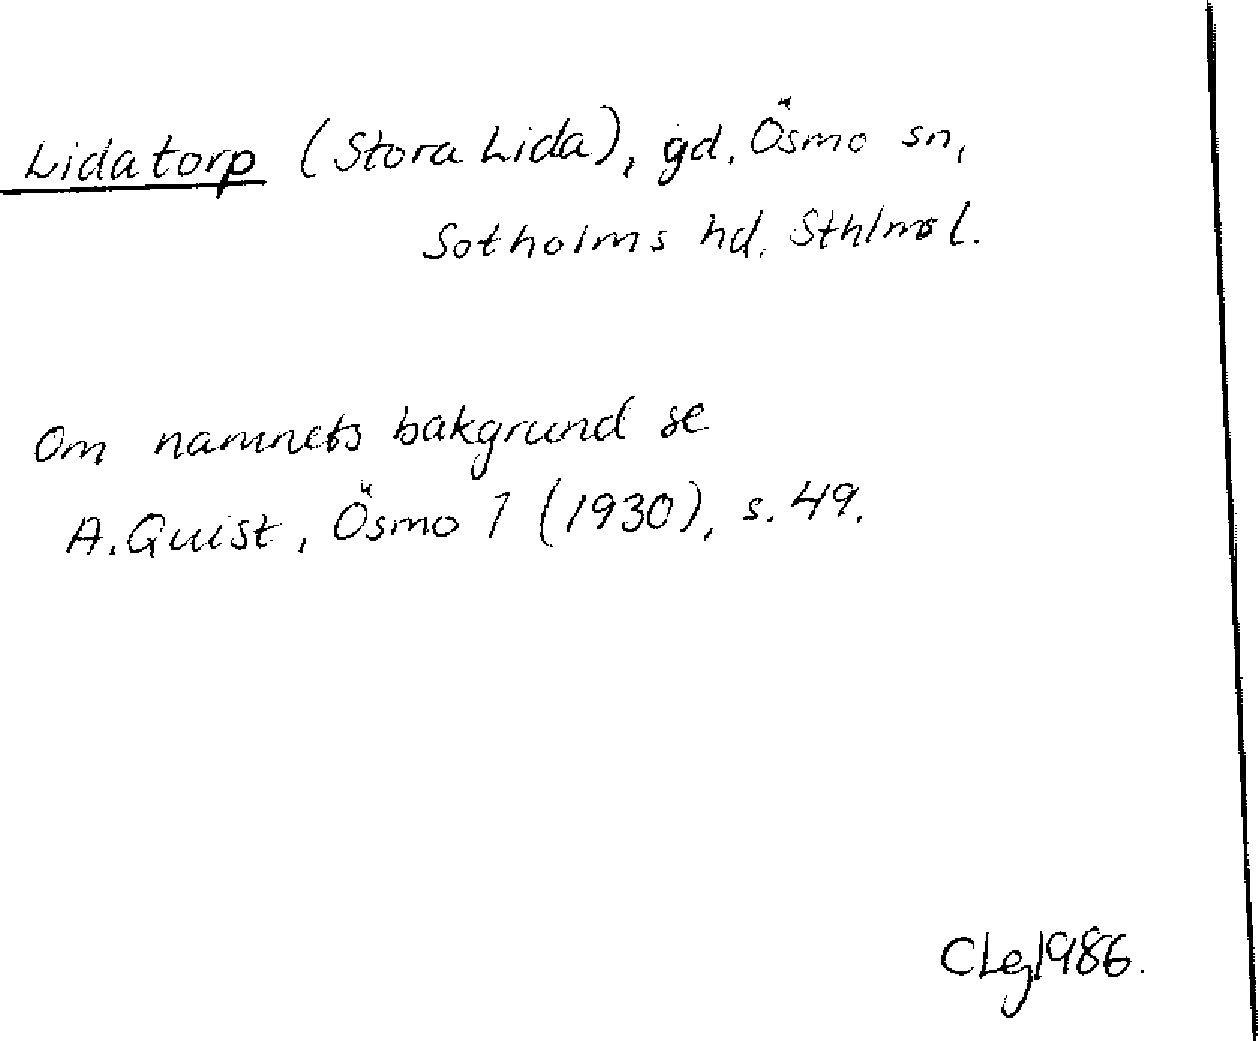 Lidatorp (Stora Lida), gd, Ösmo sn,
Sotholms hd. Sthlms l.
Om namnets bakgrund se
A. Quist, Ösmo 1 (1930), s. 49.
CLg 1986.